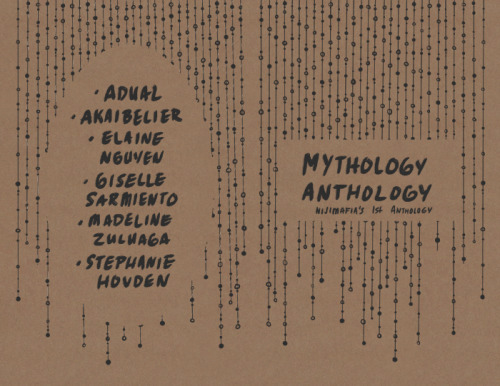 • ADUAL
• AKAIBELIER
• ELAINE
NGUYEN
• GISELLE
SARMIENTO
• MADELINE
ZULUAGA
• STEPHANIE
HOVDEN
MYTHOLOGY
ANTHOLOGY
NIJIMAFIA'S 1ST ANTHOLOGY